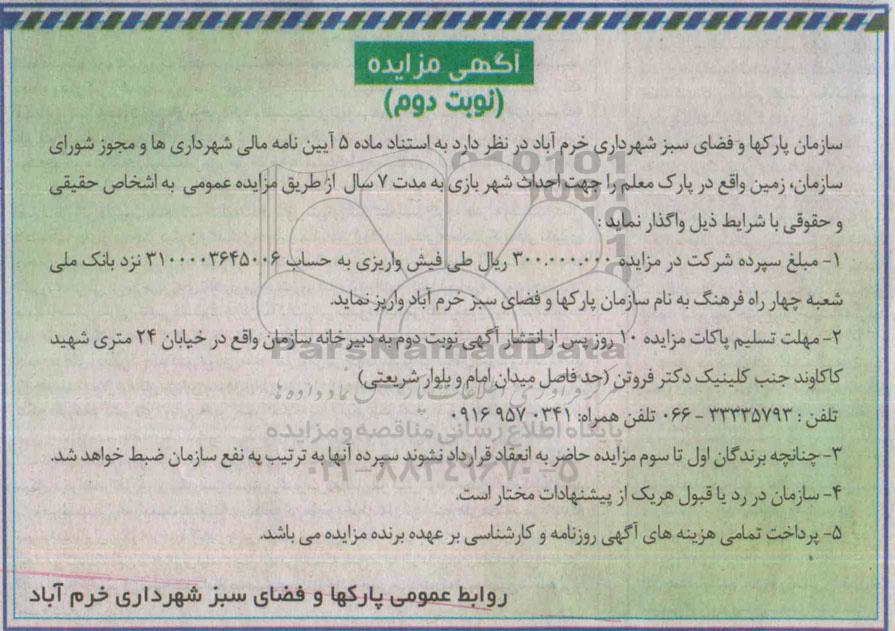 آگهی مزایده
(نوبت دوم)
سازمان پارکها و فضای سبز شهرداری خرم آباد در نظر دارد به استناد ماده ۵ آیین نامه مالی شهرداری ها و مجوز شورای
سازمان، زمین واقع در پارک معلم را جهت احداث شهر بازی به مدت ۷ سال از طریق مزایده عمومی به اشخاص حقیقی
و حقوقی با شرایط ذیل واگذار نماید :
۱- مبلغ سپرده شرکت در مزایده ۳۰۰.۰۰۰.۰۰۰ ریال طی فیش واریزی به حساب ۳۱۰۰۰۰۳۶۴۵۰۰۶ نزد بانک ملی
شعبه چهار راه فرهنگ به نام سازمان پارکها و فضای سبز خرم آباد واریز نماید.
۲- مهلت تسلیم پاکات مزایده ۱۰ روز پس از انتشار آگهی نوبت دوم به دبیرخانه سازمان واقع در خیابان ۲۴ متری شهید
ParsNamadData
کاکاوند جنب کلینیک دکتر فروتن (حد فاصل میدان امام و بلوار شریعتی)
تلفن : ۳۳۳۳۵۷۹۳ - ۰۶۶ تلفن همراه: ۰۳۴۱ ۹۵۷ ۰۹۱۶
پایگاه اطلاع رسانی مناقصه و مزایده
۳- چنانچه برندگان اول تا سوم مزایده حاضر به انعقاد قرارداد نشوند سپرده آنها به ترتیب به نفع سازمان ضبط خواهد شد.
۰۲۱-۸۸۳۴۹۶۷۰-۵
۴- سازمان در رد یا قبول هریک از پیشنهادات مختار است.
۵- پرداخت تمامی هزینه های آگهی روزنامه و کارشناسی بر عهده برنده مزایده می باشد.
روابط عمومی پارکها و فضای سبز شهرداری خرم آباد